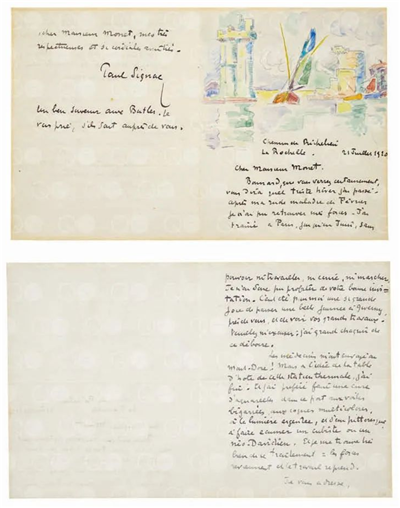 cher Monsieur Monet, mes très
respectueuses et si cordiales amitiés.
Paul Signac
Un bon souvenir aux Butler, je
vous prie, s'ils sont auprès de vous.
Chemin de Richelieu
La Rochelle. 21 Juillet 1920
Cher Monsieur Monet.
Bonnard, que vous verrez certainement,
vous dira quel triste hiver j'ai passé.
après ma rude maladie de Février
je n'ai pu retrouver mes forces. J'ai
traîné à Paris, jusqu'en Juin, sans
pouvoir ni travailler, ni écrire, ni marcher.
Je n'ai donc pu profiter de votre bonne invi-
tation. C'eut été pour moi une si grande
joie de passer une belle journée à Giverny,
près de vous, et de voir vos grands travaux.
Veuillez m'excuser; j'ai grand chagrin de
ce déboire.
Les médecins m'ont envoyé au
Mont-Dore! Mais à l'idée de la table
d'hôte de cette station thermale, j'ai
fui. Et j'ai préféré faire une cure
d'aquarelles dans ce port aux voiles
bigarrées, aux coques multicolores,
à la lumière argentée, et d'un pittoresque
à faire écumer un cubiste ou un
néo-Davidien. Et je me trouve très
bien de ce traitement: les forces
reviennent et le travail reprend.
Je vous adresse,